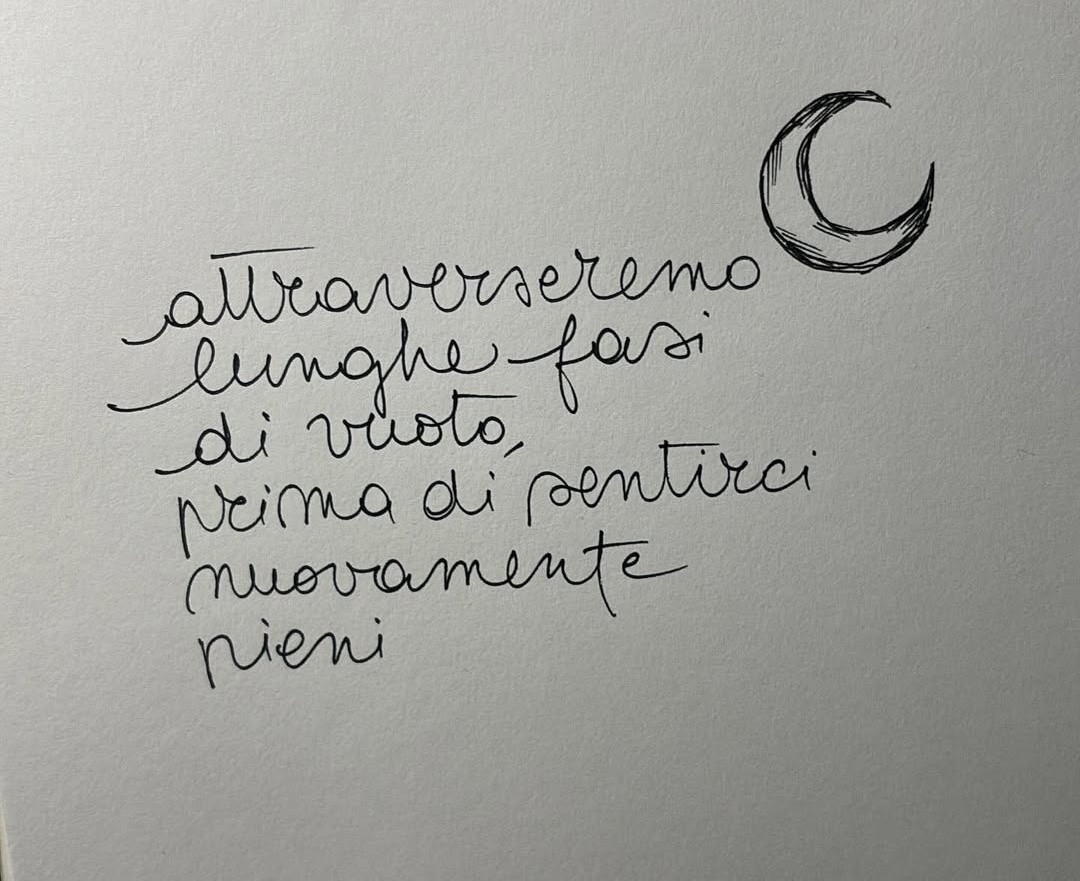 attraverseremo
lunghe fasi
di vuoto,
prima di sentirci
nuovamente
pieni